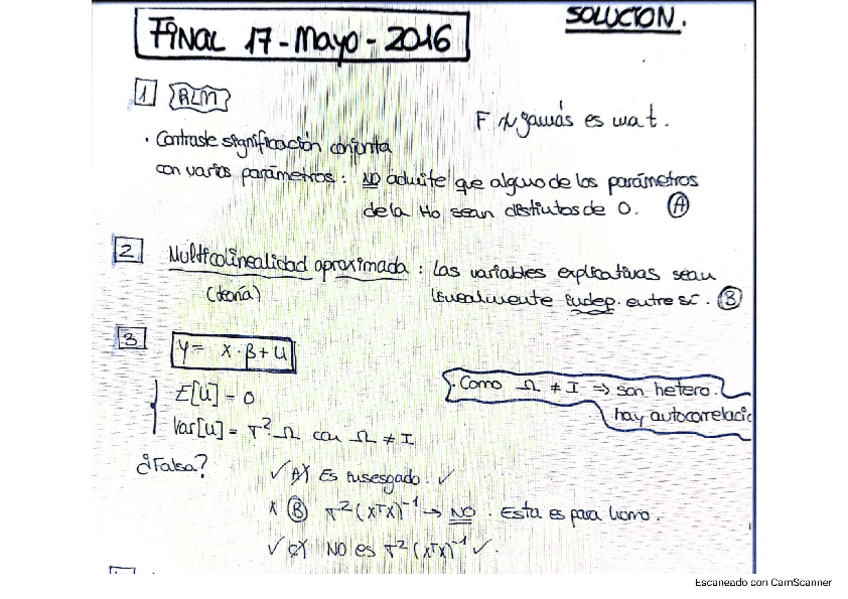 SOLUCION.
FINAL 17-Mayo-2016
1 RLM
F jamás es mat.
· Contraste significación conjunta
con varios parámetros: NO admite que alguno de los parámetros
de la Ho sean distintos de 0. (A)
2 Multicolinealidad aproximada: Las variables explicativas sean
(teoría) linealmente indep. entre sí. (B)
3 Y = X·β+U
· Como Ω ≠ I ⇒ son hetero.
E[U] = 0
hay autocorrelació
Var[U] = σ²·Ω con Ω ≠ I
¿Falsa? ✓ A) Es insesgado. ✓
X (B) σ²(XᵀX)⁻¹ → NO. Esta es para homo.
✓ C) NO es σ²(XᵀX)⁻¹ ✓.
Escaneado con CamScanner